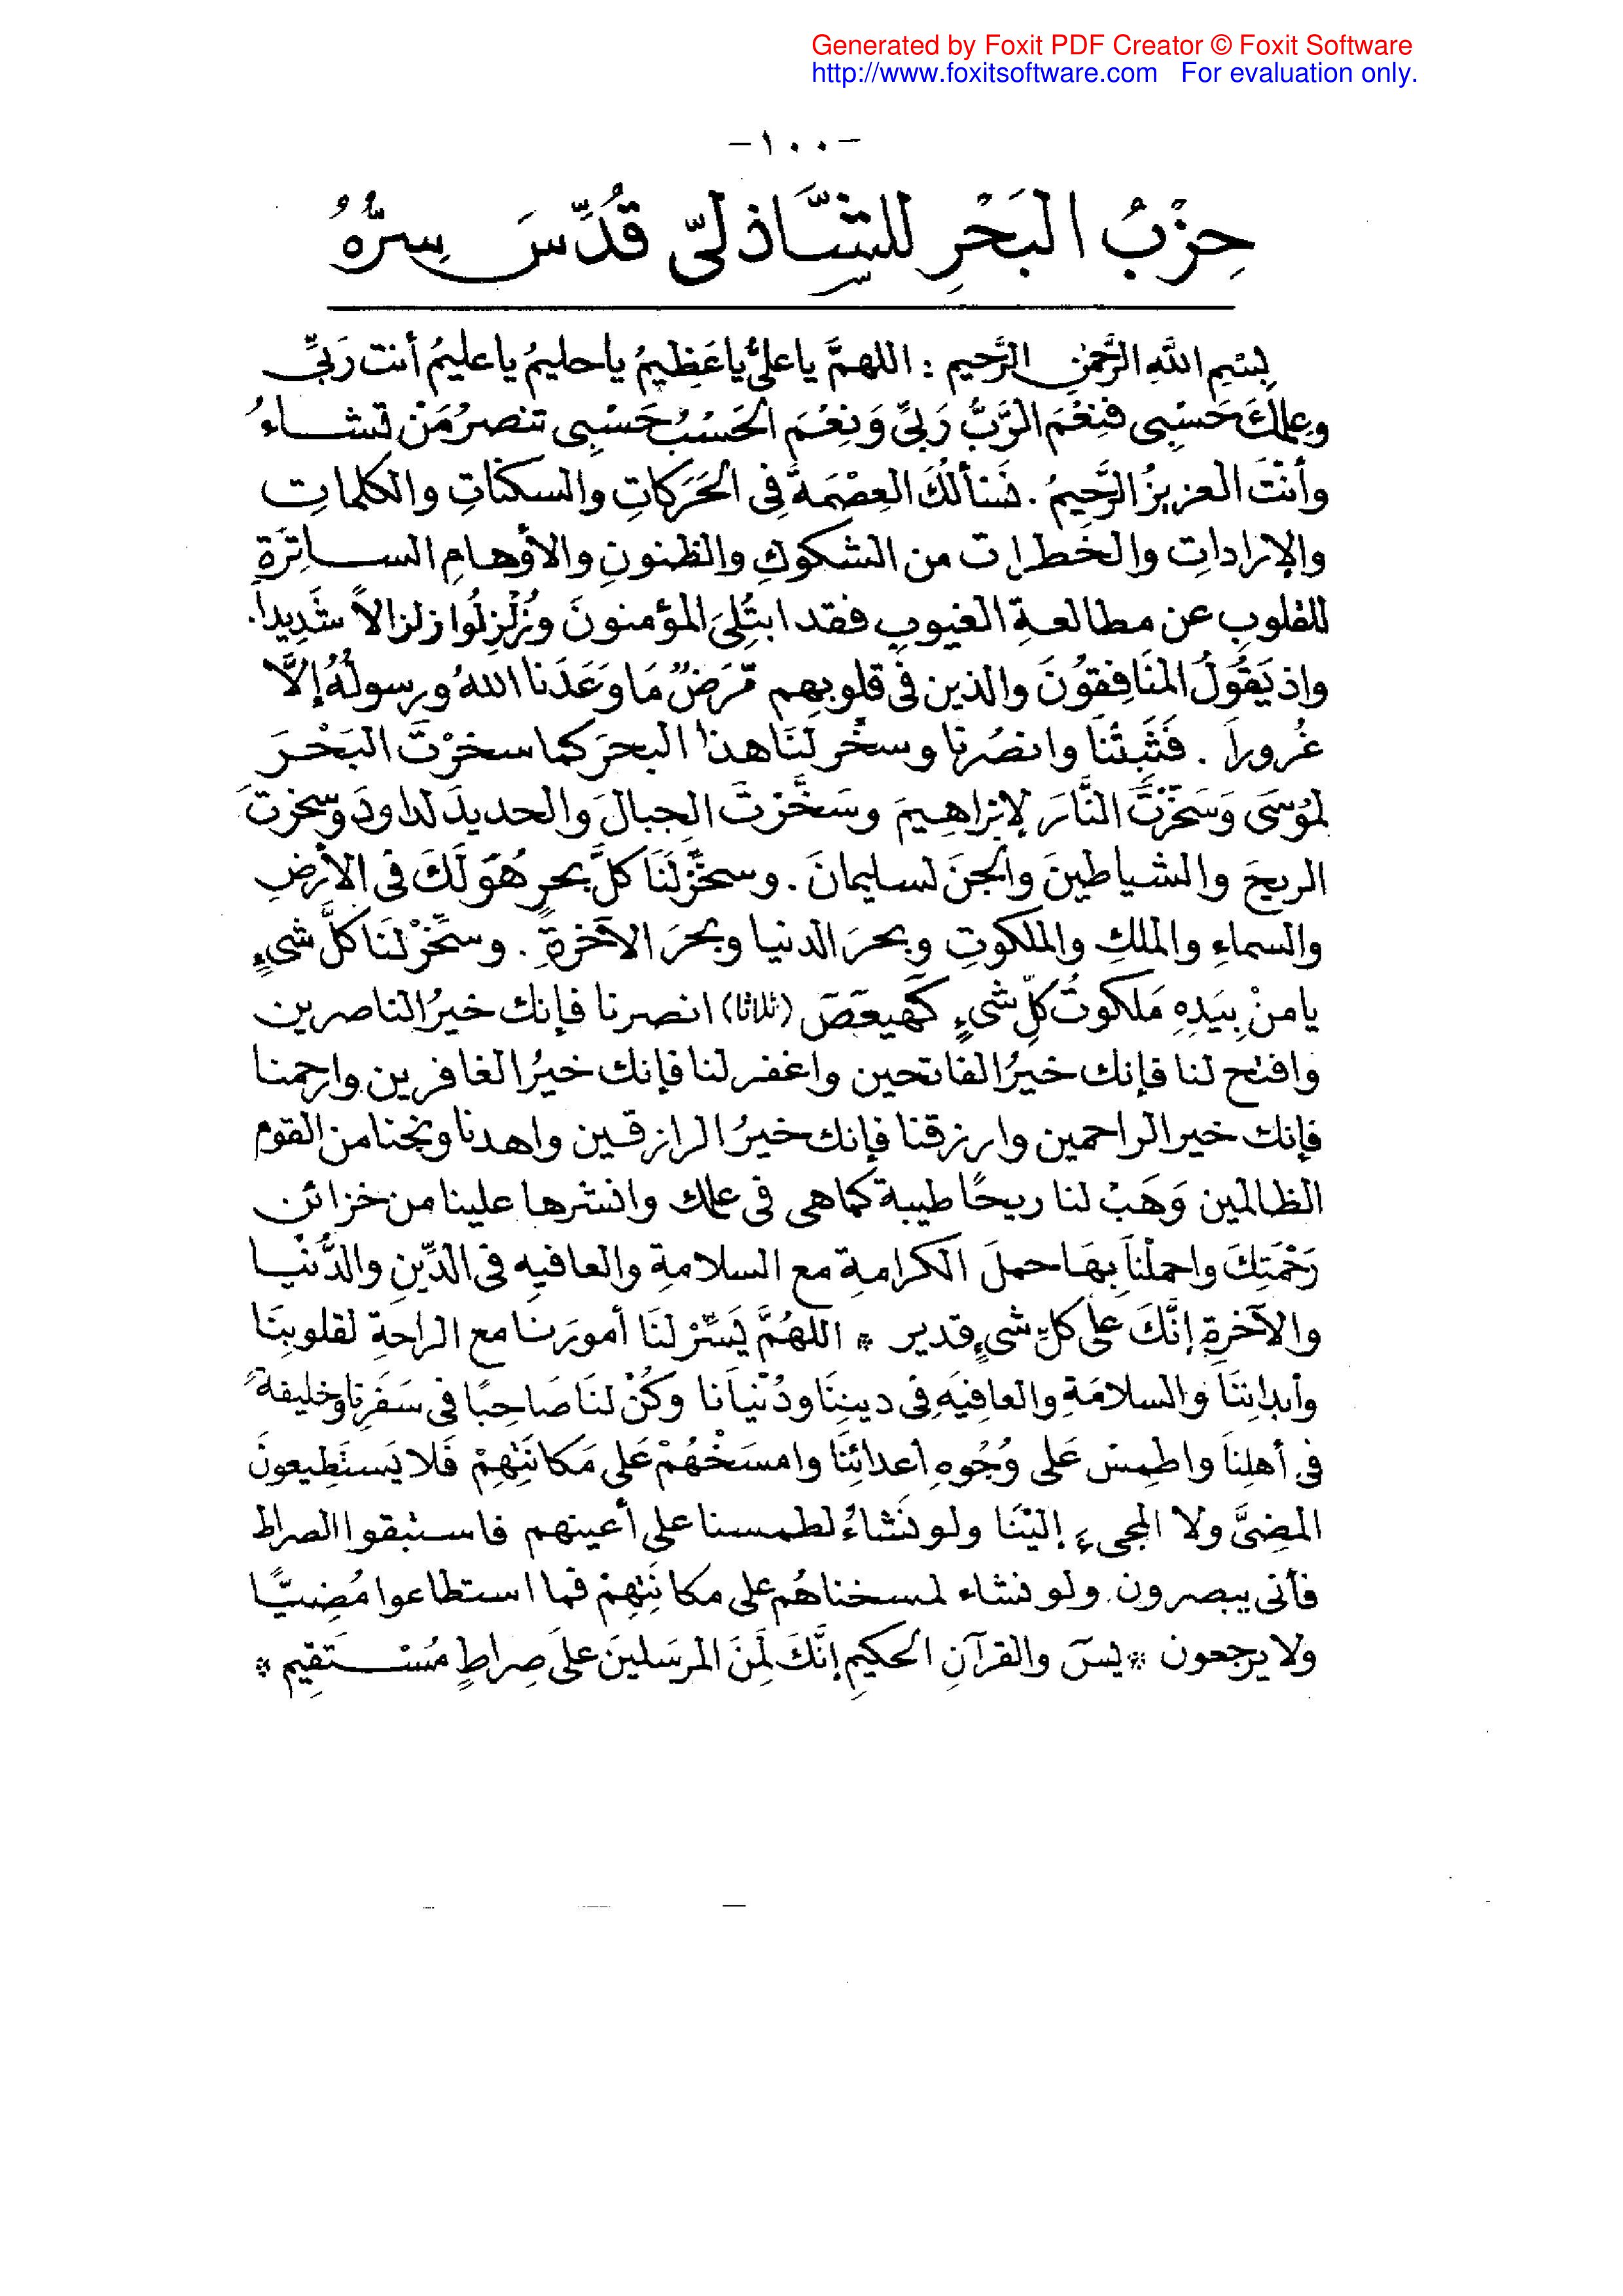 Generated by Foxit PDF Creator © Foxit Software
http://www.foxitsoftware.com For evaluation only.
-١٠٠-
حِزْبُ البَحْرِ للشَّاذلىّ قُدِّسَ سِرُّهُ
بِسْمِ اللَّهِ الرَّحْمٰنِ الرَّحِيمِ : اللهمَّ ياعلىُّ ياعَظِيمُ ياحليمُ ياعليمُ أنت رَبِّى
وعِلمُكَ حَسْبِى فنِعْمَ الرَّبُّ رَبِّى وَنِعْمَ الحَسْبُ حَسْبِى تنصرُ مَنْ تشاءُ
وأنتَ العزيزُ الرَّحِيمُ . نسألُكَ العِصْمَةَ فِى الحَرَكاتِ والسكناتِ والكلماتِ
والإراداتِ والخَطراتِ من الشكوكِ والظنونِ والأوهامِ الساتِرَةِ
للقلوبِ عن مطالعةِ الغيوبِ فقد ابتُلِىَ المؤمنونَ وزُلْزِلُوا زلزالاً شَدِيداً.
وإذ يَقُولُ المنَافِقُونَ والذين فى قلوبِهِم مَّرَضٌ مَا وَعَدَنا اللهُ ورسولُهُ إلاَّ
غُروراً . فَثَبِّتْنَا وانصُرنا وسخِّر لَنَا هذا البحرَ كما سخرْتَ البَحْرَ
لمُوسَى وَسَخَّرْتَ النَّارَ لإبْراهِيمَ وسَخَّرْتَ الجِبالَ والحديدَ لداودَ وسخرتَ
الريحَ والشياطينَ والجنَ لسليمانَ . وسخِّرْ لَنَا كلَّ بحرٍ هُوَ لَكَ فى الأرضِ
والسماءِ والملكِ والملكوتِ وبحرَ الدنيا وبحرَ الآخرةِ . وسَخِّرْ لنَا كلَّ شىءٍ
يامنْ بِيَدِهِ مَلكوتُ كلِّ شىءٍ كٓهيعٓصٓ (ثلاثا) انصرنا فإنك خيرُ الناصرين
وافتح لنا فإنك خيرُ الفاتحين واغفر لنا فإنك خيرُ الغافرين وارحمنا
فإنك خير الراحمين وارزقنا فإنك خيرُ الرازقين واهدنا ونجنا من القوم
الظالمين وَهَبْ لنا ريحًا طيبة كماهى فى علمك وانشرها علينا من خزائن
رَحْمَتِكَ واحملْنَا بِهَا حملَ الكرامةِ مع السلامةِ والعافيهِ فى الدِّينِ والدُّنْيا
والآخرةِ إنَّكَ على كلِّ شىءٍ قدير * اللهُمَّ يَسِّرْ لنَا أمورَنا مع الراحةِ لقلوبِنَا
وأبدانِنَا والسلامَةِ والعافِيَهِ فى دينِنَا ودُنْيَانا وكُنْ لنَا صَاحِبًا فى سَفَرِنا وخليفةً
فى أهلِنَا واطمِسْ عَلى وُجُوهِ أعدائِنَا وامسَخْهُمْ عَلى مَكانَتِهِمْ فَلا يَستَطِيعونَ
المضِىَّ ولا المجىءِ إليْنَا ولو نَشاءُ لطمسنا على أعينهم فاستبقوا الصراط
فأنى يبصرون ولو نشاء لمسخناهُم على مكانَتِهِمْ فما استطاعوا مُضِيًّا
ولا يرجعون * يسٓ والقرآنِ الحكيمِ إنَّكَ لمِنَ المرسَلينَ علىَ صِراطٍ مُسْتَقِيمٍ *